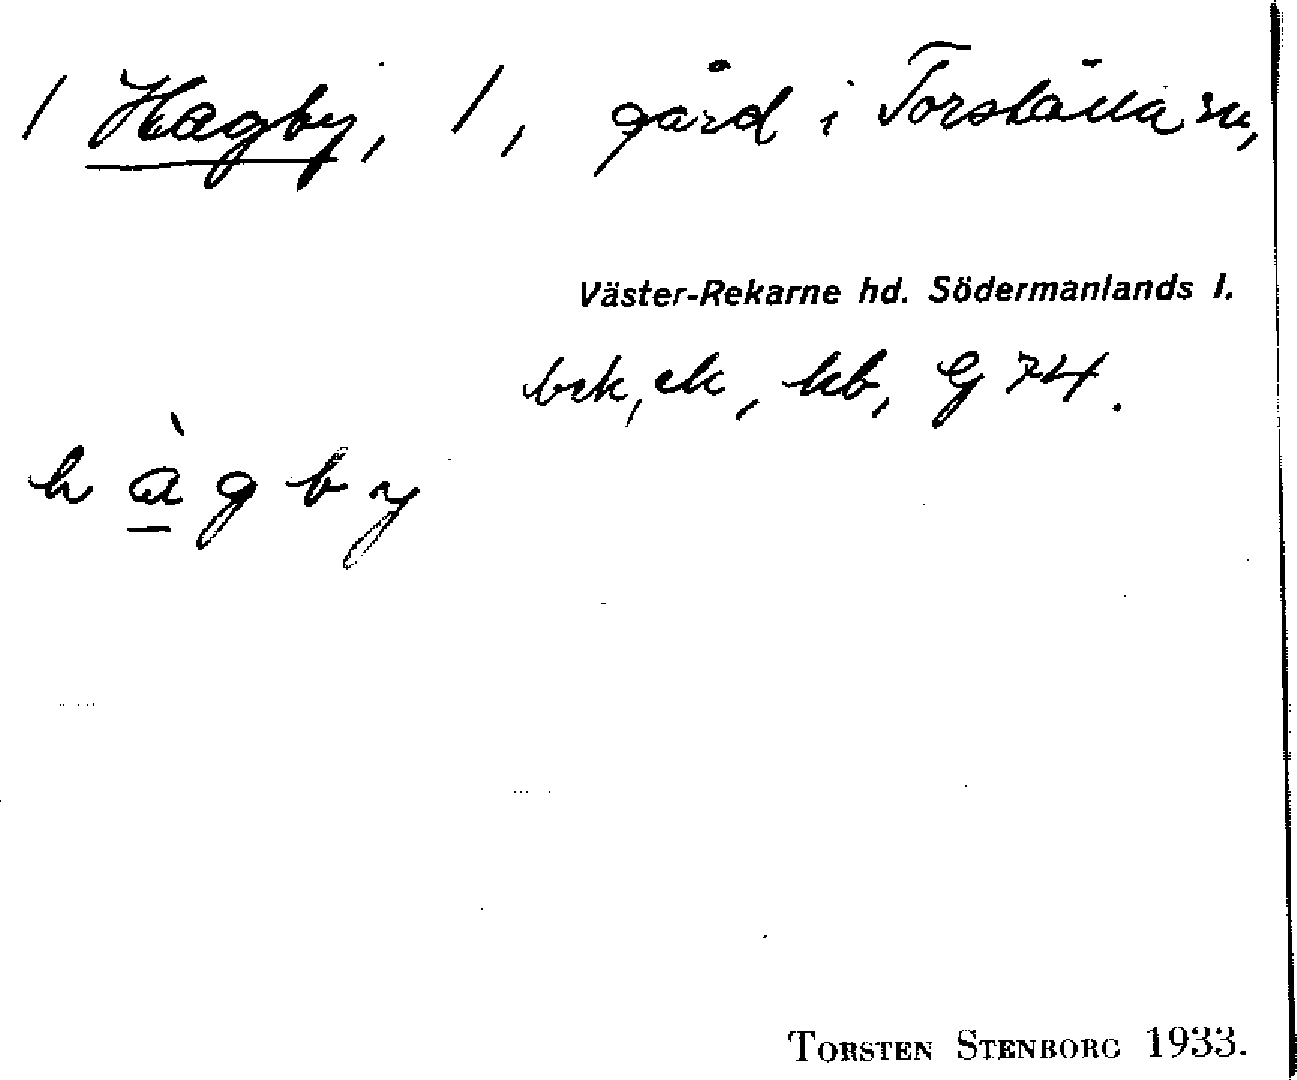 1 Hagby, 1, gård i Torshälla sn,
Väster-Rekarne hd. Södermanlands l.
bek, ek, kb, G 74.
hàgby
TORSTEN STENBORG 1933.